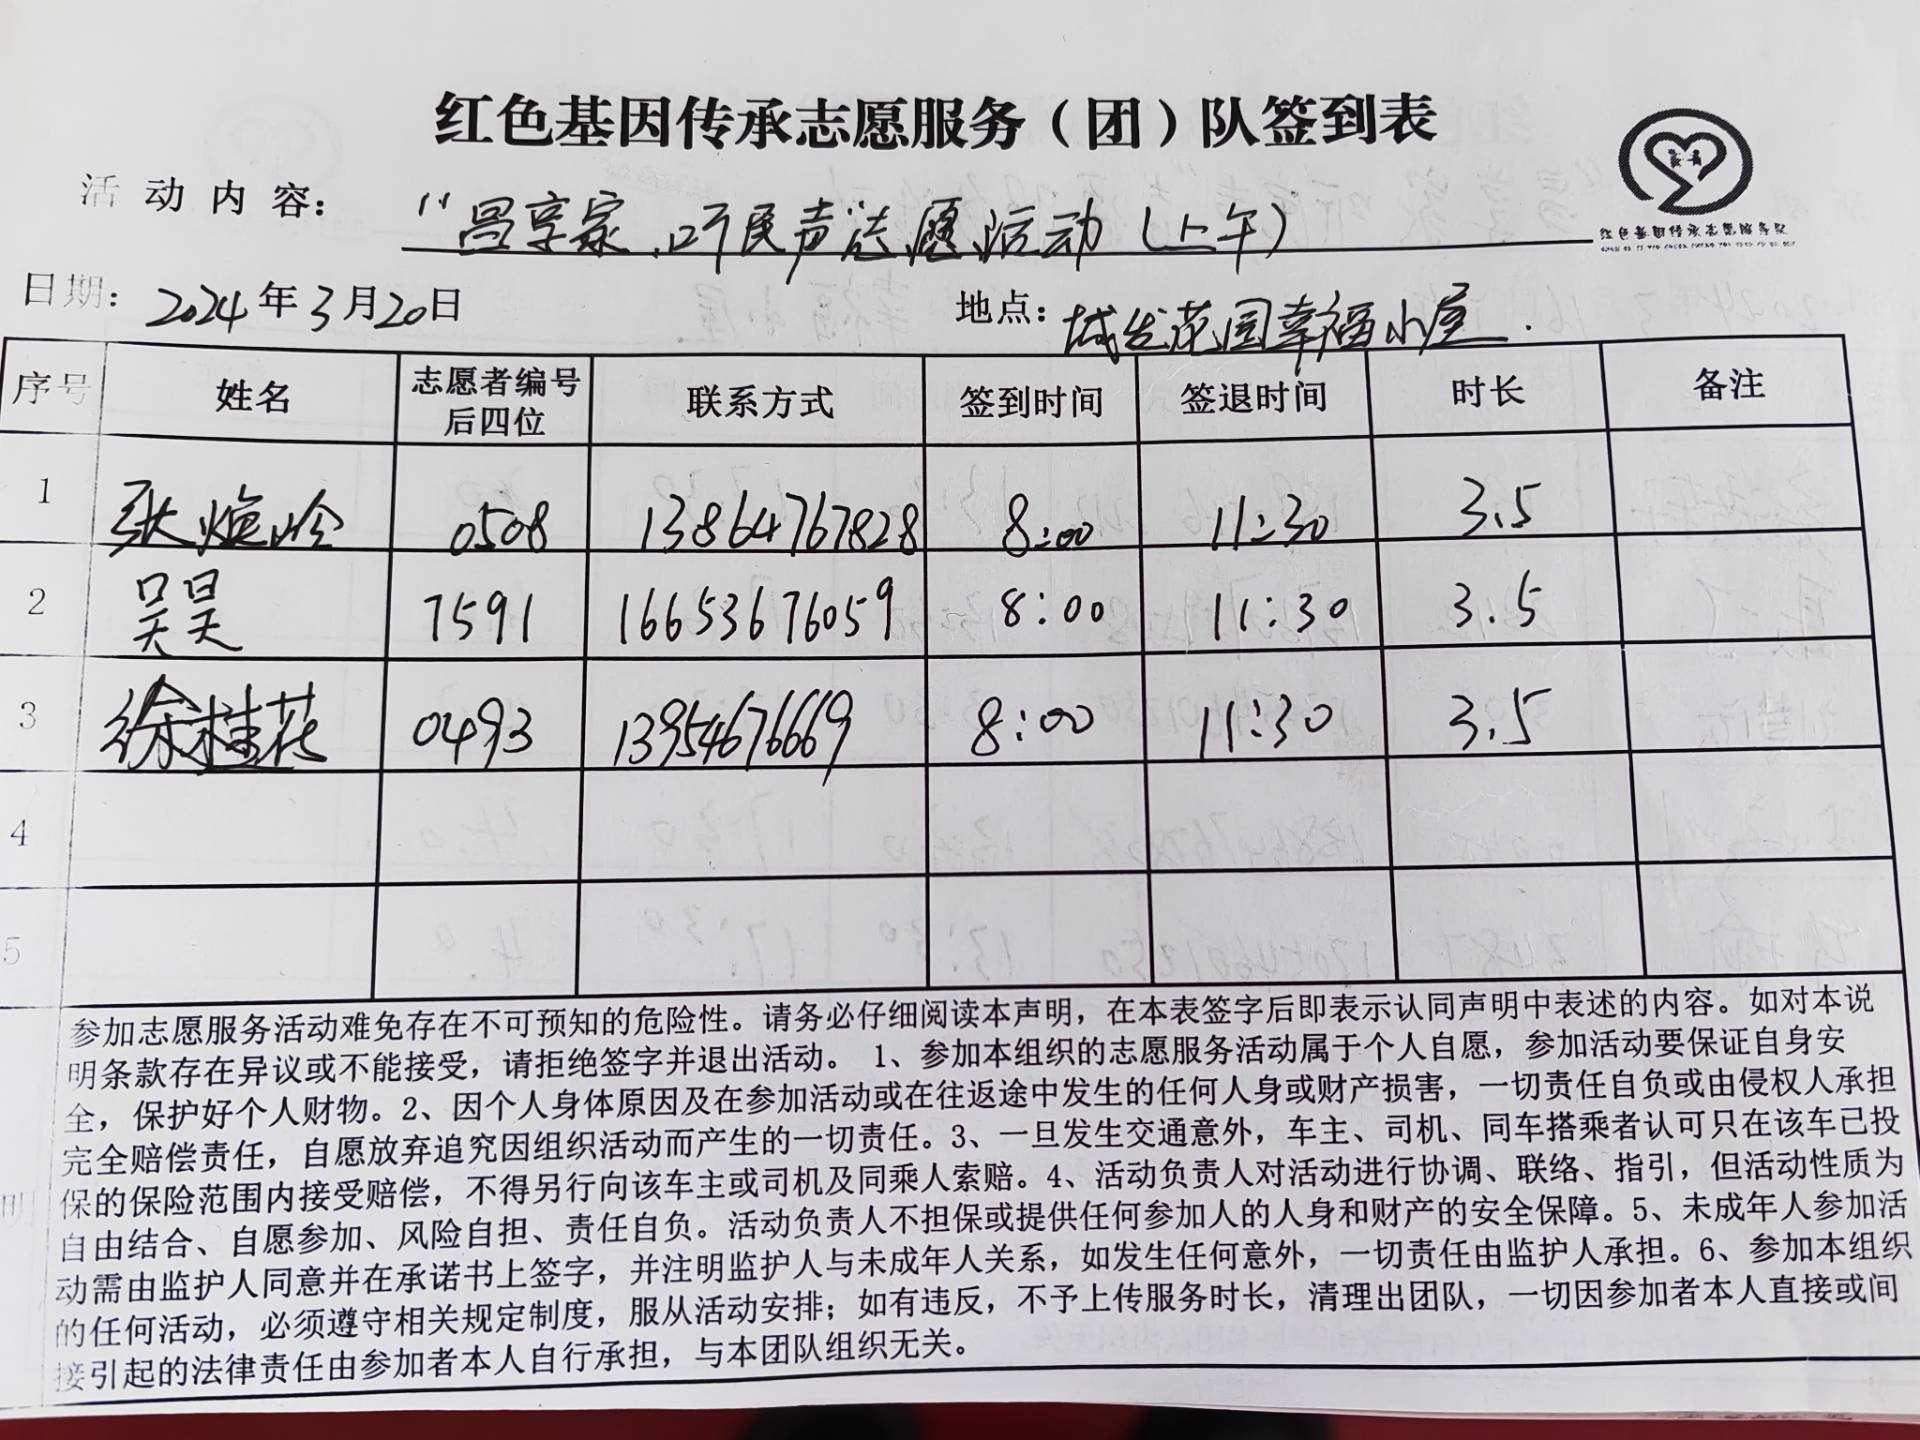 红色基因传承志愿服务（团）队签到表
活动内容：“昌享家、听民声”志愿活动（上午）
红色基因传承志愿服务队
日期：2024年3月20日 地点：城发花园幸福小屋.
序号 姓名 志愿者编号后四位 联系方式 签到时间 签退时间 时长 备注
1 张焕岭 0508 13864767828 8:00 11:30 3.5
2 吴昊 7591 16653676059 8:00 11:30 3.5
3 徐桂花 0493 13954676669 8:00 11:30 3.5
4
5
参加志愿服务活动难免存在不可预知的危险性。请务必仔细阅读本声明，在本表签字后即表示认同声明中表述的内容。如对本说
明条款存在异议或不能接受，请拒绝签字并退出活动。 1、参加本组织的志愿服务活动属于个人自愿，参加活动要保证自身安
全，保护好个人财物。2、因个人身体原因及在参加活动或在往返途中发生的任何人身或财产损害，一切责任自负或由侵权人承担
完全赔偿责任，自愿放弃追究因组织活动而产生的一切责任。3、一旦发生交通意外，车主、司机、同车搭乘者认可只在该车已投
保的保险范围内接受赔偿，不得另行向该车主或司机及同乘人索赔。4、活动负责人对活动进行协调、联络、指引，但活动性质为
明 自由结合、自愿参加、风险自担、责任自负。活动负责人不担保或提供任何参加人的人身和财产的安全保障。5、未成年人参加活
动需由监护人同意并在承诺书上签字，并注明监护人与未成年人关系，如发生任何意外，一切责任由监护人承担。6、参加本组织
的任何活动，必须遵守相关规定制度，服从活动安排；如有违反，不予上传服务时长，清理出团队，一切因参加者本人直接或间
接引起的法律责任由参加者本人自行承担，与本团队组织无关。